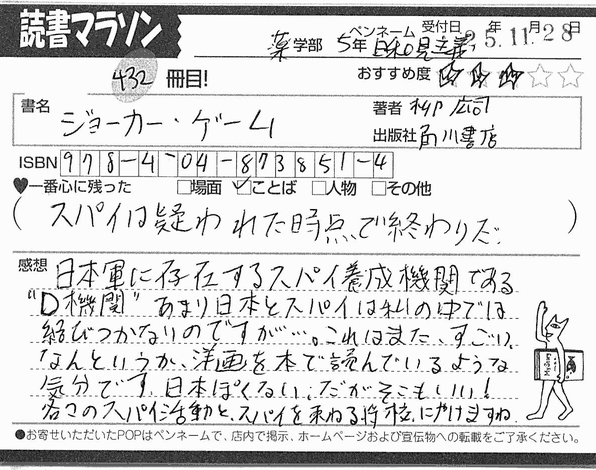 読書マラソン
薬学部 5年 ペンネーム 日和見主義 受付日 25年11月28日
432冊目! おすすめ度 ☆☆☆☆☆
書名 ジョーカー・ゲーム 著者 柳広司
出版社 角川書店
ISBN 978-4-04-873851-4
♥一番心に残った □場面 ☑ことば □人物 □その他
(スパイは疑われた時点で終わりだ。)
感想 日本軍に存在するスパイ養成機関である
"D機関" あまり日本とスパイは私の中では
結びつかないのですが…。これはまた、すごい。
なんというか、洋画を本で読んでいるような
気分です。日本ぽくない。だがそこもいい!
各々のスパイ活動と、スパイを束ねる将校、にやけますね。
●お寄せいただいたPOPはペンネームで、店内で掲示、ホームページおよび宣伝物への転載をご了承ください。